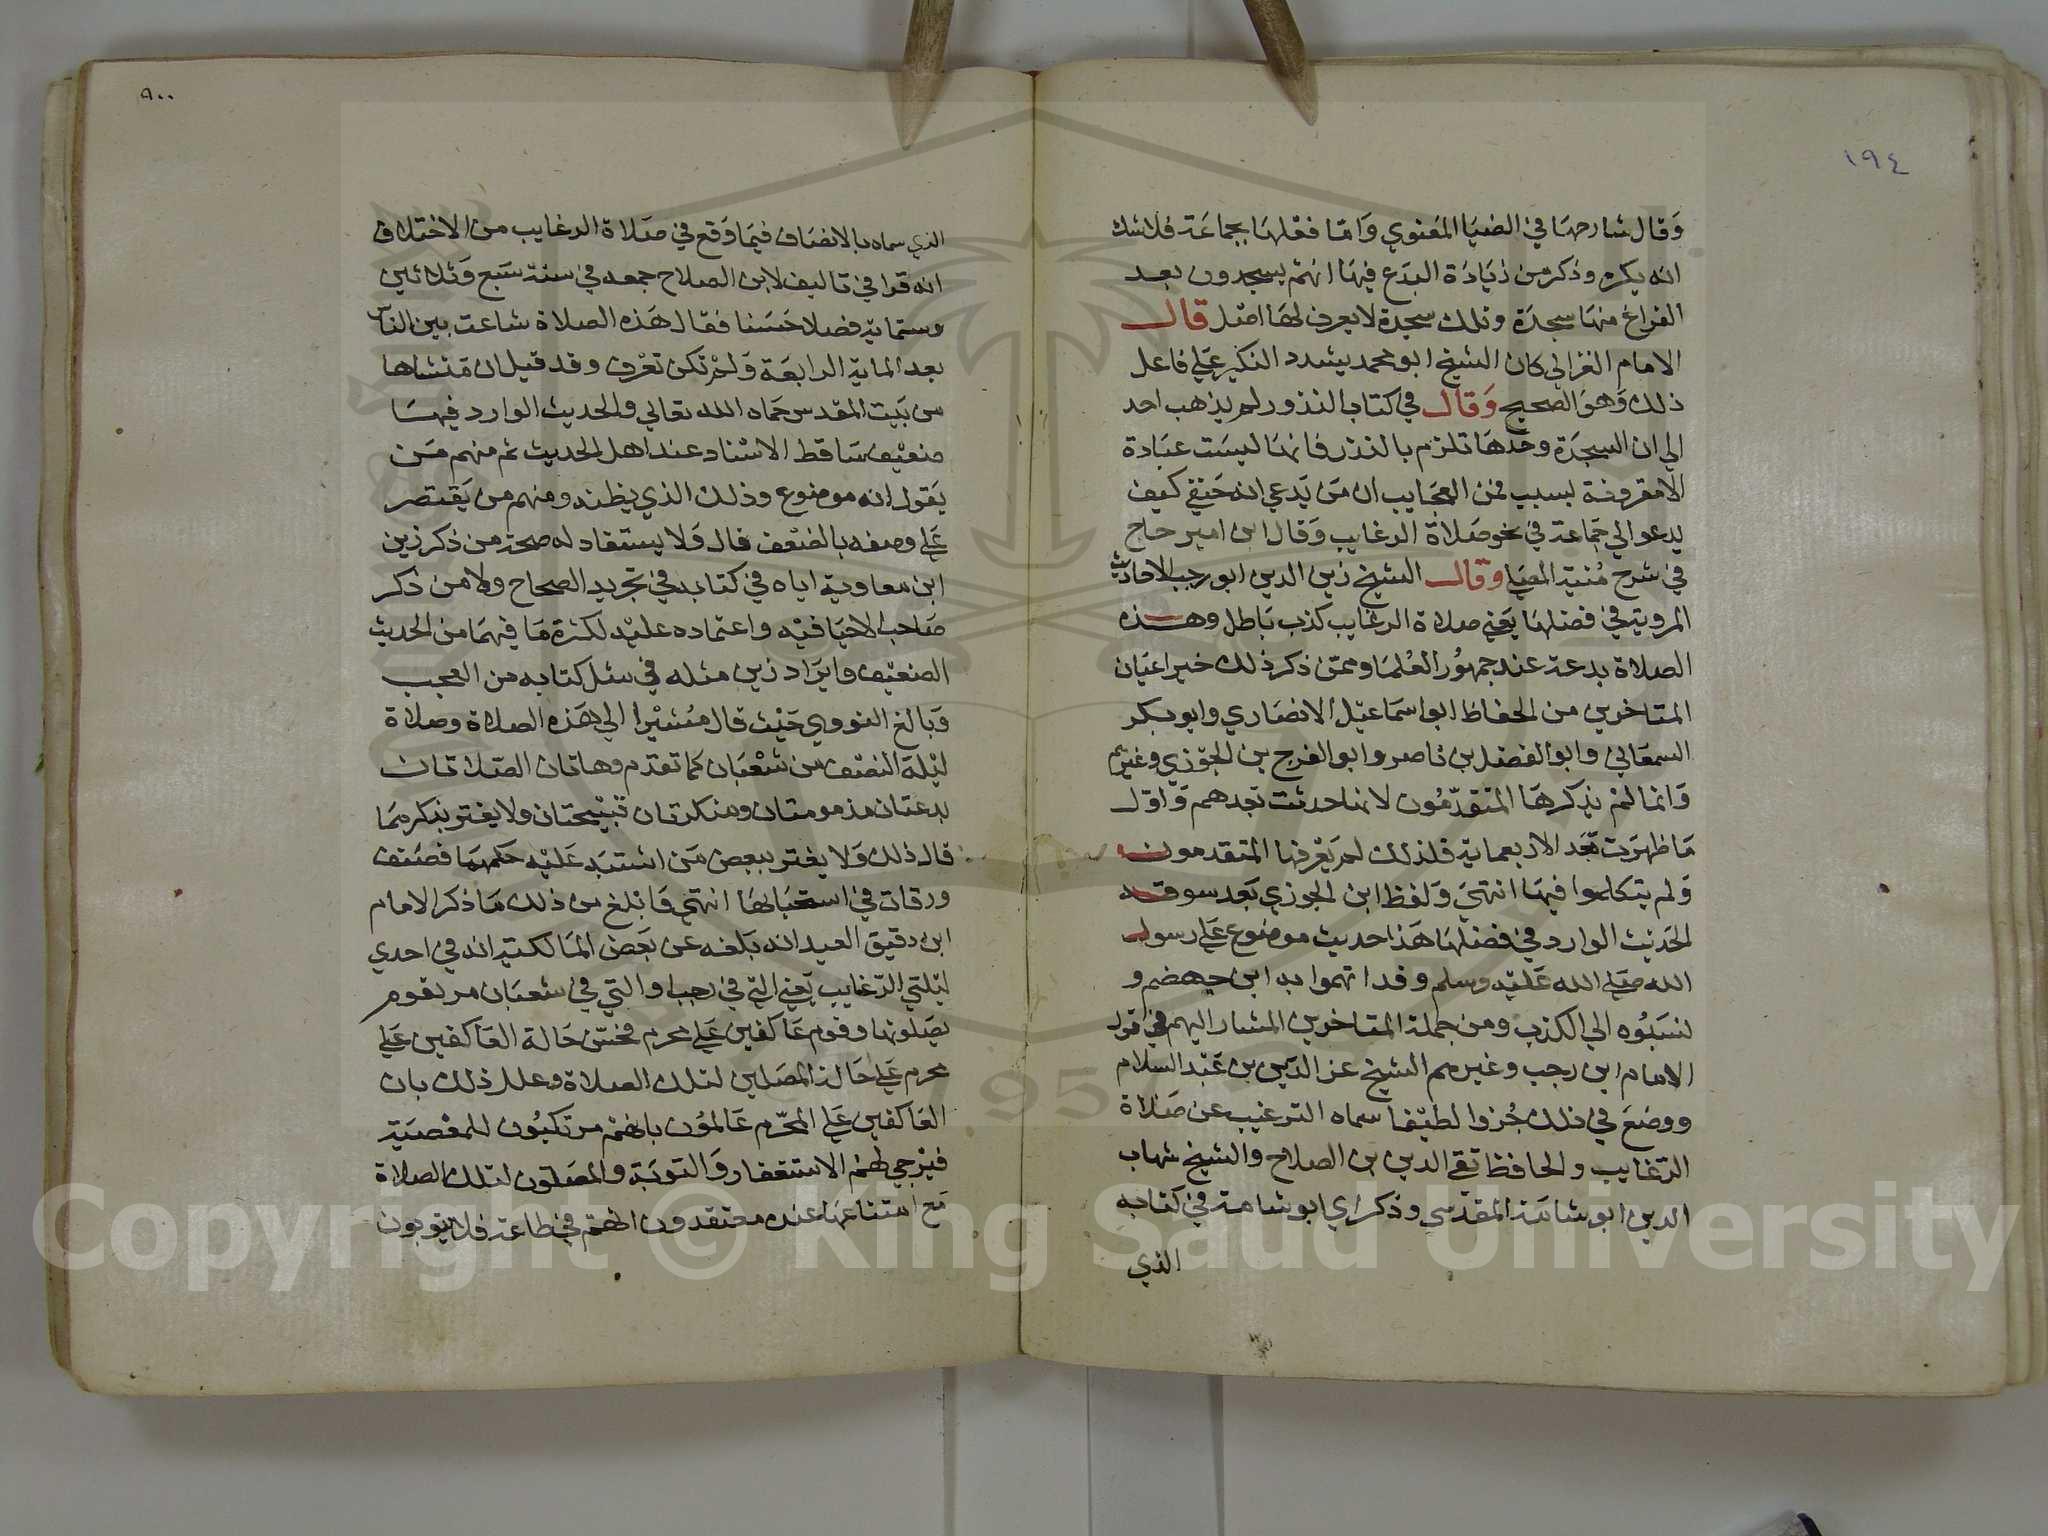 ١٩٤
وقال شارحها في الضيا المعنوي واما فعلها بجماعة فلا شك
انه يكره وذكر من زيادة البدع فيها انهم يسجدون بعد
الفراغ منها سجدة وتلك سجدة لا يعرف لها اصل قال
الامام الغزالي كان الشيخ ابو محمد يشدد النكير علي فاعل
ذلك وهو الصحيح وقال في كتاب النذور لم يذهب احد
الي ان السجدة وحدها تلزم بالنذر فانها ليست عبادة
الا مقرونة بسبب فمن العجايب ان من يدعي انه حنفي كيف
يدعو الي جماعة في نحو صلاة الرغايب وقال ابن امير حاج
في شرح منية المصلي وقال الشيخ زين الدين ابو رجب الاحاديث
المروية في فضلها يعني صلاة الرغايب كذب باطل وهذه
الصلاة بدعة عند جمهور العلما وممن ذكر ذلك خير اعيان
المتاخرين من الحفاظ ابو اسماعيل الانصاري وابو بكر
السمعاني وابو الفضل بن ناصر وابو الفرج بن الجوزي وغيرهم
وانما لم يذكرها المتقدمون لانها احدثت بعدهم واول
ما ظهرت بعد الاربعماية فلذلك لم يعرفها المتقدمون
ولم يتكلموا فيها انتهي ولفظ ابن الجوزي بعد سوقه
الحديث الوارد في فضلها هذا حديث موضوع علي رسول
الله صلي الله عليه وسلم وقد اتهموا به ابن جهضم و
نسبوه الي الكذب ومن جملة المتاخرين المشار اليهم في قول
الامام ابن رجب وغيرهم الشيخ عز الدين بن عبد السلام
ووضع في ذلك جزوا لطيفا سماه الترغيب عن صلاة
الرغايب والحافظ تقي الدين بن الصلاح والشيخ شهاب
الدين ابو شامة المقدسي وذكر اي ابو شامة في كتابه
الذي
٩٠٠
الذي سماه بالانصاف فيما وقع في صلاة الرغايب من الاختلاف
انه قرا في تاليف لابن الصلاح جمعه في سنة سبع وثلاثين
وستماية فصلا حسنا فقال هذه الصلاة شاعت بين الناس
بعد الماية الرابعة ولم تكن تعرف وقد قيل ان منشاها
من بيت المقدس حماه الله تعالي والحديث الوارد فيها
ضعيف ساقط الاسناد عند اهل الحديث ثم منهم من
يقول انه موضوع وذلك الذي يظنه ومنهم من يقتصر
علي وصفه بالضعف قال ولا يستفاد له صحة من ذكر زين
ابن معاوية اياه في كتابه في تجريد الصحاح ولا من ذكر
صاحب الاحيا فيه واعتماده عليه لكثرة ما فيهما من الحديث
الضعيف وايراد زين مثله في مثل كتابه من العجب
وبالغ النووي حيث قال مشيرا الي هذه الصلاة وصلاة
ليلة النصف من شعبان كما تقدم وهاتان الصلاتان
بدعتان مذمومتان ومنكرتان قبيحتان ولا يغتر بذكرهما
قال ذلك ولا يغتر ببعض من اشتبه عليه حكمهما فصنف
ورقات في استحبابها انتهي وابلغ من ذلك ما ذكر الامام
ابن دقيق العيد انه بلغه عن بعض المالكية انه في احدي
ليلتي الرغايب يعني التي في رجب والتي في شعبان مر بقوم
يصلونها وقوم عاكفين علي محرم فحسن حالة العاكفين علي
محرم علي حالة المصلين لتلك الصلاة وعلل ذلك بان
العاكفين علي المحرم عالمون بانهم مرتكبون للمعصية
فيرجي لهم الاستغفار والتوبة والمصلون لتلك الصلاة
مع امتناعها عنده معتقدون انهم في طاعة فلا يتوبون
Copyright © King Saud University